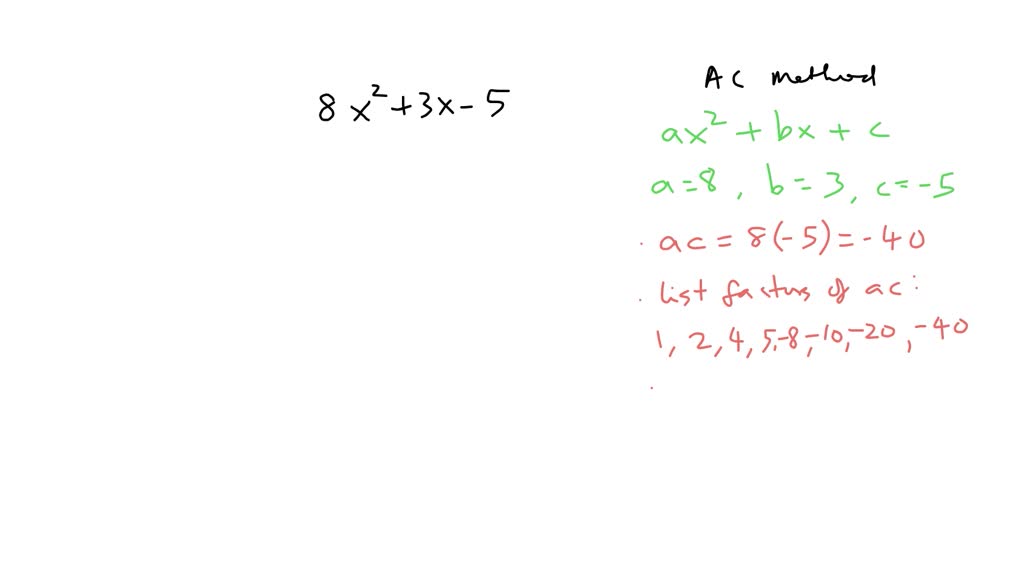 8x²+3x-5
AC method
ax² + bx + c
a=8, b=3, c=-5
· ac = 8(-5)=-40
· list factors of ac:
1, 2, 4, 5,-8,-10,-20, -40
·